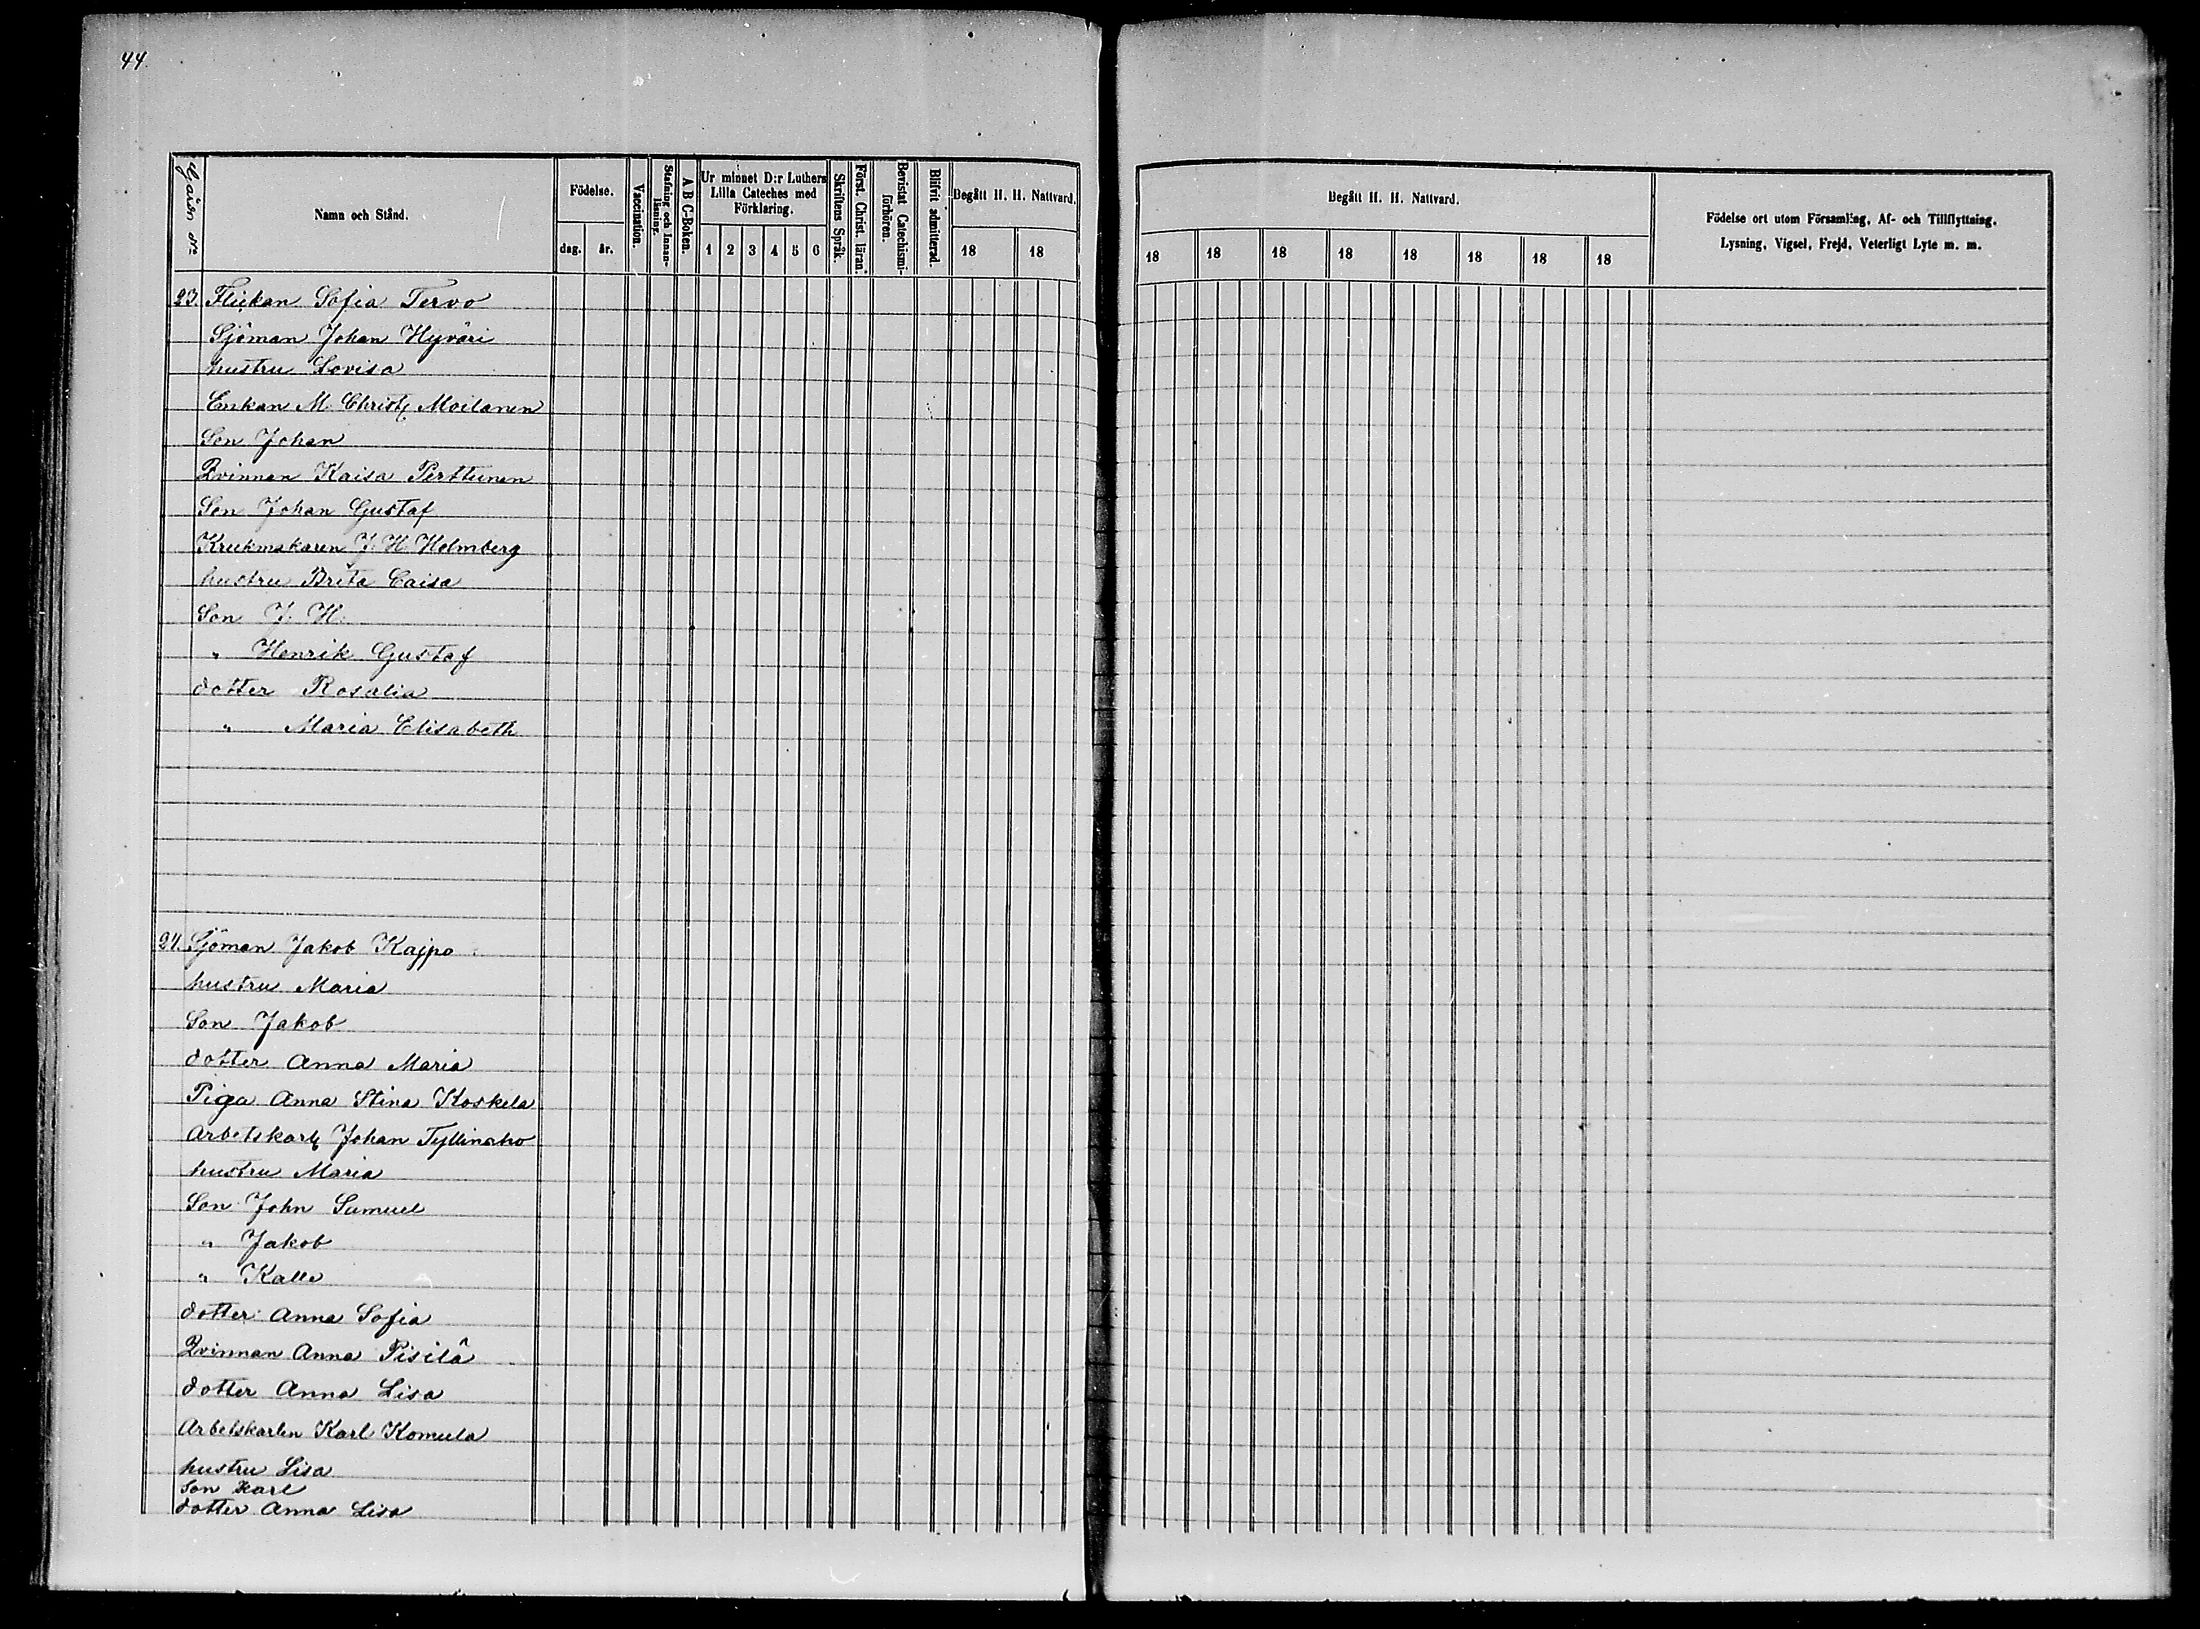 44.
Gårdn No
Namn och Stånd.
Födelse.
dag. år.
Vaccination.
Stafning och Innan-
läsning.
A B C-Boken.
Ur minnet D:r Luthers
Lilla Cateches med
Förklaring.
1 2 3 4 5 6
Skriftens Språk.
Först. Christ. läran.
Bevistat Catechismi-
förhören.
Blifvit admitterad.
Begått H. H. Nattvard.
18 18
Begått H. H. Nattvard.
18 18 18 18 18 18 18 18
Födelse ort utom Församling, Af- och Tillflyttning,
Lysning, Vigsel, Frejd, Veterligt Lyte m. m.
23. Flickan Sofia Tervo
Sjöman Johan Hyväri
hustru Lovisa
Enkan M. Christ Moilanen
Son Johan
Qvinnan Kaisa Perttunen
Son Johan Gustaf
Krukmakaren J. H. Holmberg
hustru Brita Caisa
Son J. H.
" Henrik Gustaf
dotter Rosalia
" Maria Elisabeth
24. Sjöman Jakob Kajpo
hustru Maria
Son Jakob
dotter Anna Maria
Piga Anna Stina Koskela
Arbetskarl Johan Tyllinaho
hustru Maria
Son John Samuel
" Jakob
" Kalle
dotter Anna Sofia
Qvinnan Anna Pisilä
dotter Anna Lisa
Arbetskarlen Karl Komula
hustru Lisa
Son Karl
dotter Anna Lisa